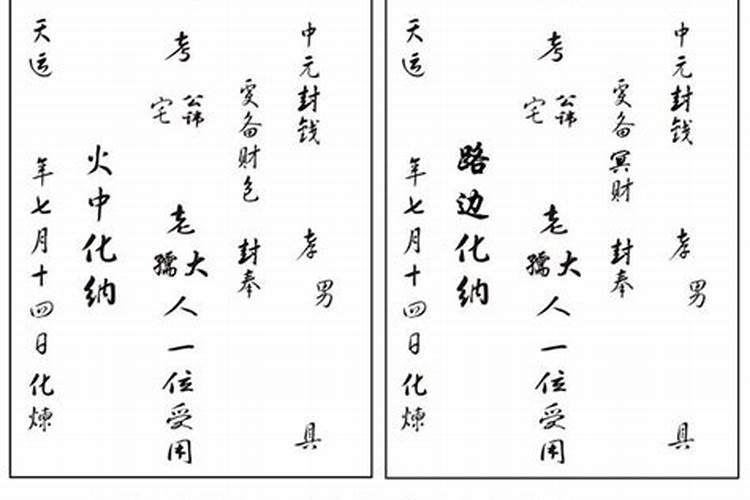 中元封钱 孝男 具
虔备财色 封奉
考 宅 公讳 老孺大人一位受用
火中化纳
天运 年七月十四日化煉
中元封钱 孝男 具
虔备冥财 封奉
考 宅 公讳 老孺大人一位受用
路边化纳
天运 年七月十四日化煉